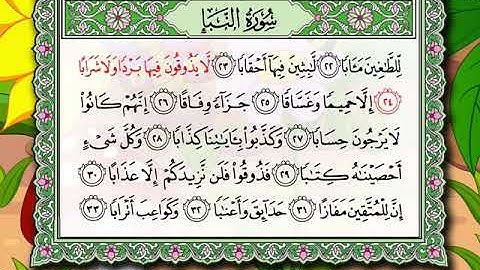 سُورَةُ النَّبَإِ
لِّلطَّٰغِينَ مَـَٔابًا ٢٢ لَّٰبِثِينَ فِيهَآ أَحْقَابًا ٢٣ لَّا يَذُوقُونَ فِيهَا بَرْدًا وَلَا شَرَابًا
٢٤ إِلَّا حَمِيمًا وَغَسَّاقًا ٢٥ جَزَآءً وِفَاقًا ٢٦ إِنَّهُمْ كَانُوا۟
لَا يَرْجُونَ حِسَابًا ٢٧ وَكَذَّبُوا۟ بِـَٔايَٰتِنَا كِذَّابًا ٢٨ وَكُلَّ شَىْءٍ
أَحْصَيْنَٰهُ كِتَٰبًا ٢٩ فَذُوقُوا۟ فَلَن نَّزِيدَكُمْ إِلَّا عَذَابًا ٣٠
إِنَّ لِلْمُتَّقِينَ مَفَازًا ٣١ حَدَآئِقَ وَأَعْنَٰبًا ٣٢ وَكَوَاعِبَ أَتْرَابًا ٣٣